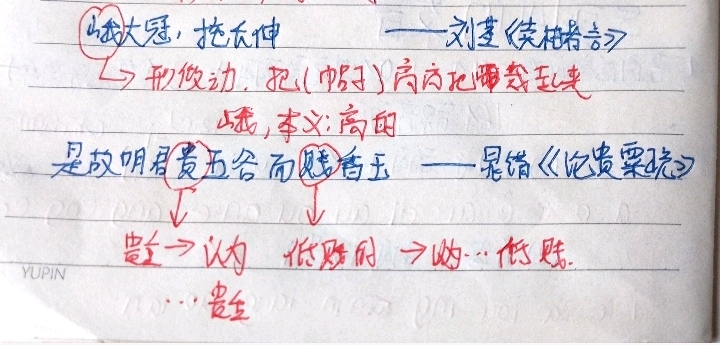 峨大冠,拖长伸 ——刘基《卖柑者言》
形做动.把(帽子)高高地戴起来
峨,本义:高的
是故明君贵五谷而贱金玉 ——晁错《论贵粟疏》
贵重→认为 低贱的→认为…低贱.
…贵重
YUPIN